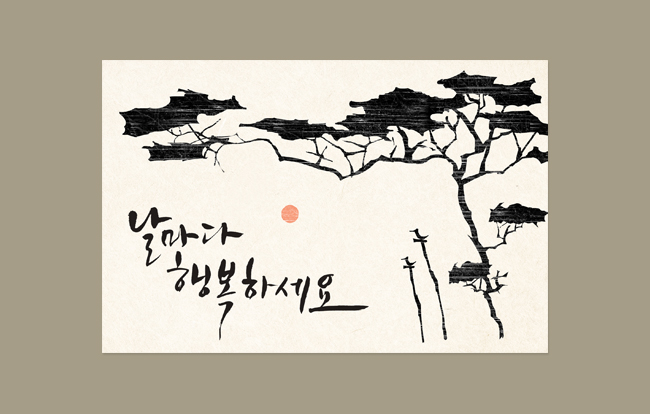 날마다
행복하세요